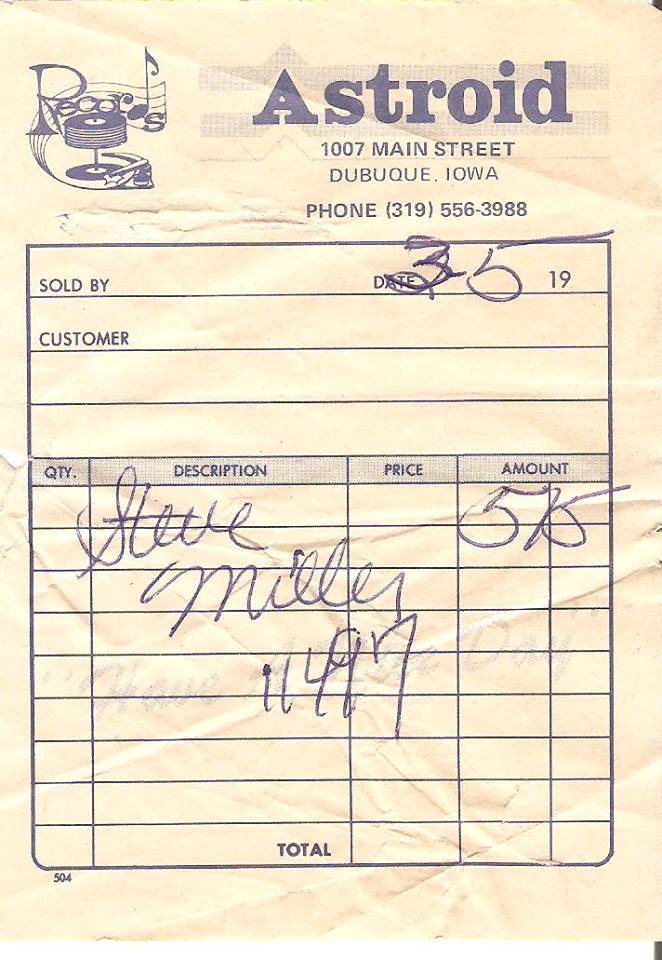 Records
Astroid
1007 MAIN STREET
DUBUQUE, IOWA
PHONE (319) 556-3988
SOLD BY DATE 3 5 19
CUSTOMER
QTY. DESCRIPTION PRICE AMOUNT
Steve 575
Miller
11497
"Have A Nice Day"
TOTAL
504